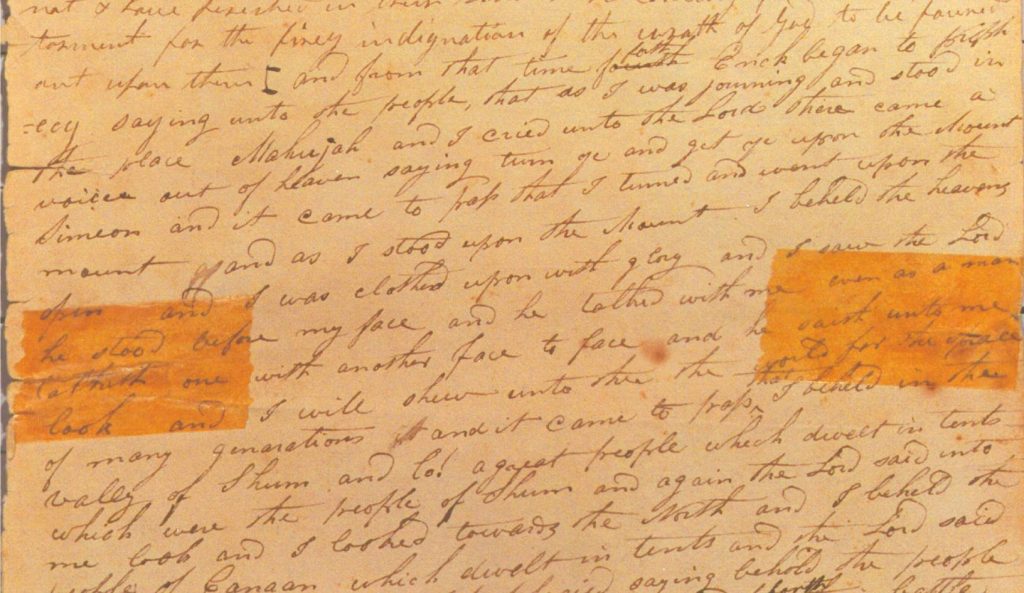 not & have perished in their
torment for the firey indignation of the wrath of God to be poured
out upon them [ and from that time forth Enock began to proph
=ecy saying unto the people, that as I was journing and stood in
the place Mahujah and I cried unto the Lord there came a
voice out of heaven saying turn ye and get ye upon the Mount
Simeon and it came to pass that I turned and went upon the
mount and as I stood upon the Mount I beheld the heavens
open and I was clothed upon with glory and I saw the Lord
he stood before my face and he talked with me even as a man
talketh one with another face to face and he saith unto me
look and I will shew unto thee the world for the space
of many generations and it came to pass that I beheld in the
vally of Shum and lo! a great people which dwelt in tents
which were the people of Shum and again the Lord said unto
me look and I looked towards the North and I beheld the
people of Canaan which dwelt in tents and the Lord said
saying behold the people
battle